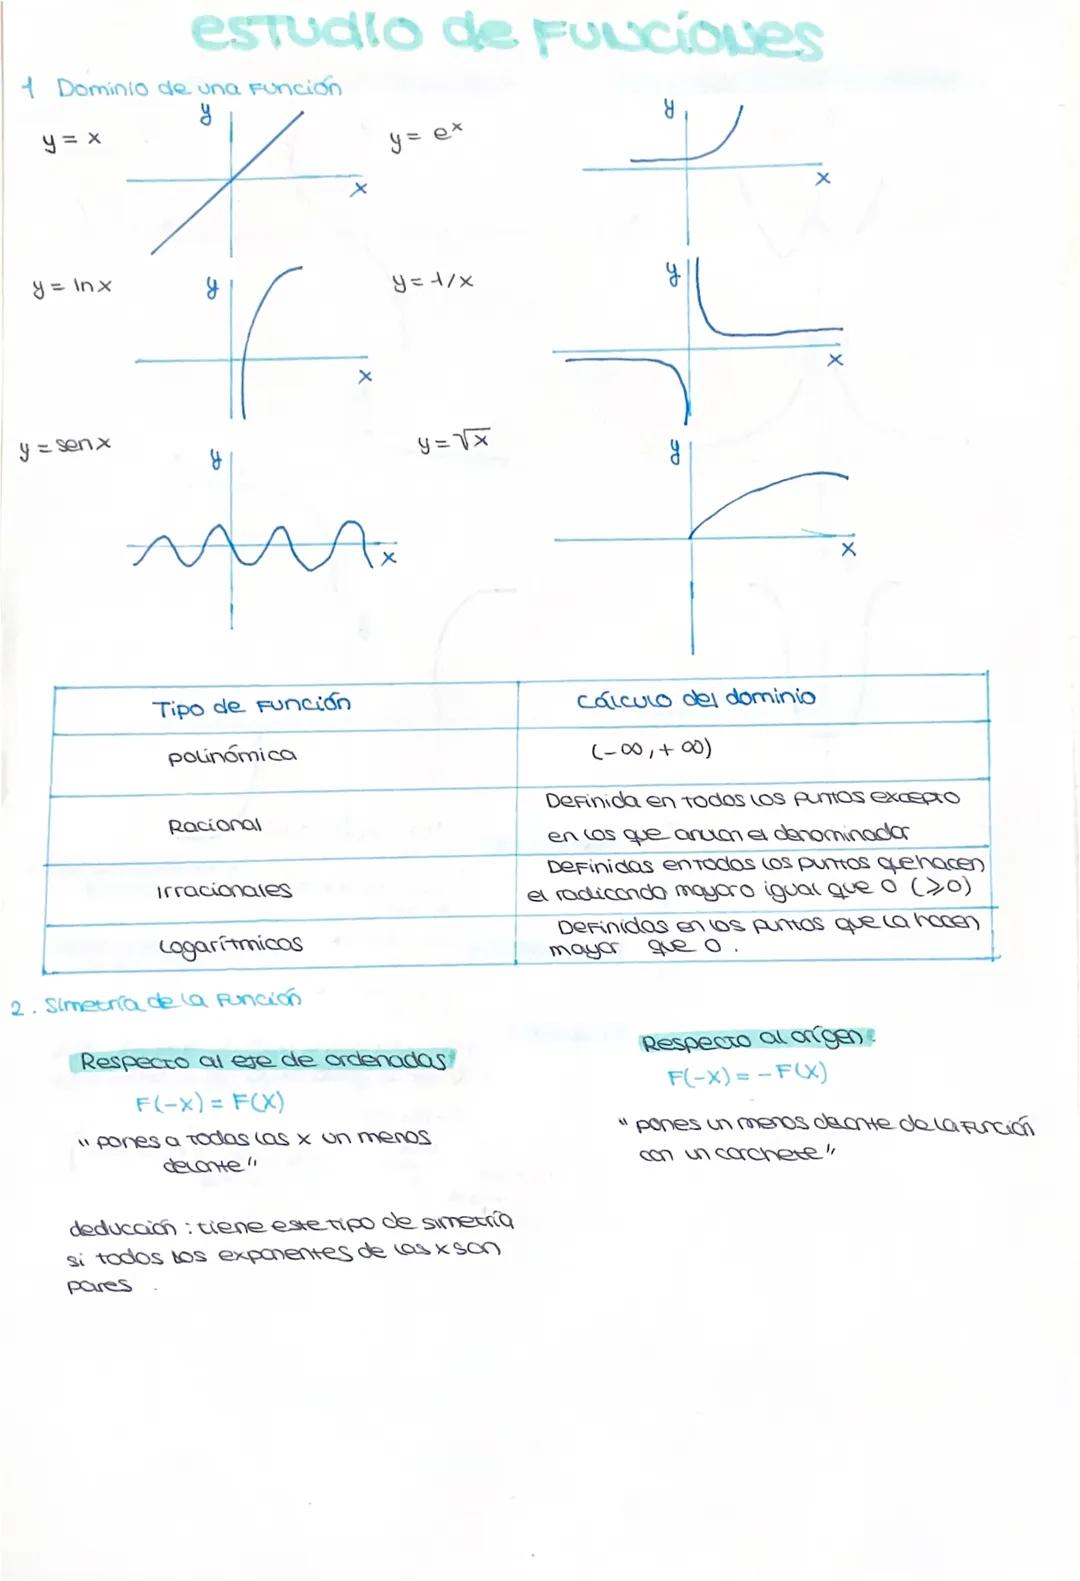 estudio de Funciones
1 Dominio de una Función
y = x
y
x
y = e^x
y
x
y = ln x
y
x
y = 1/x
y
x
y = sen x
y
x
y = √x
y
x
Tipo de Función
Cálculo del dominio
polinómica
(-∞, + ∞)
Racional
Definida en todos los puntos excepto
en los que anulan el denominador
Irracionales
Definidas en todos los puntos que hacen
el radicando mayor o igual que 0 (≥0)
Logarítmicas
Definidas en los puntos que la hacen
mayor que 0.
2. Simetría de la Función
Respecto al eje de ordenadas
F(-x) = F(x)
" pones a todas las x un menos
delante "
deducción : tiene este tipo de simetría
si todos los exponentes de las x son
pares .
Respecto al orígen :
F(-x) = - F(x)
" pones un menos delante de la Función
con un corchete "